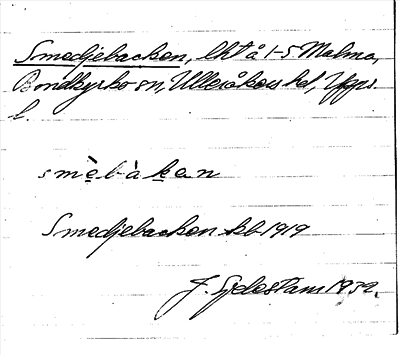 Smedjebacken, lht å 1-5 Malma,
Bondkyrko sn, Ulleråkers hd, Upps.
l.
smèbàkan
Smedjebacken kb 1919
J. Sjelestam 1932.